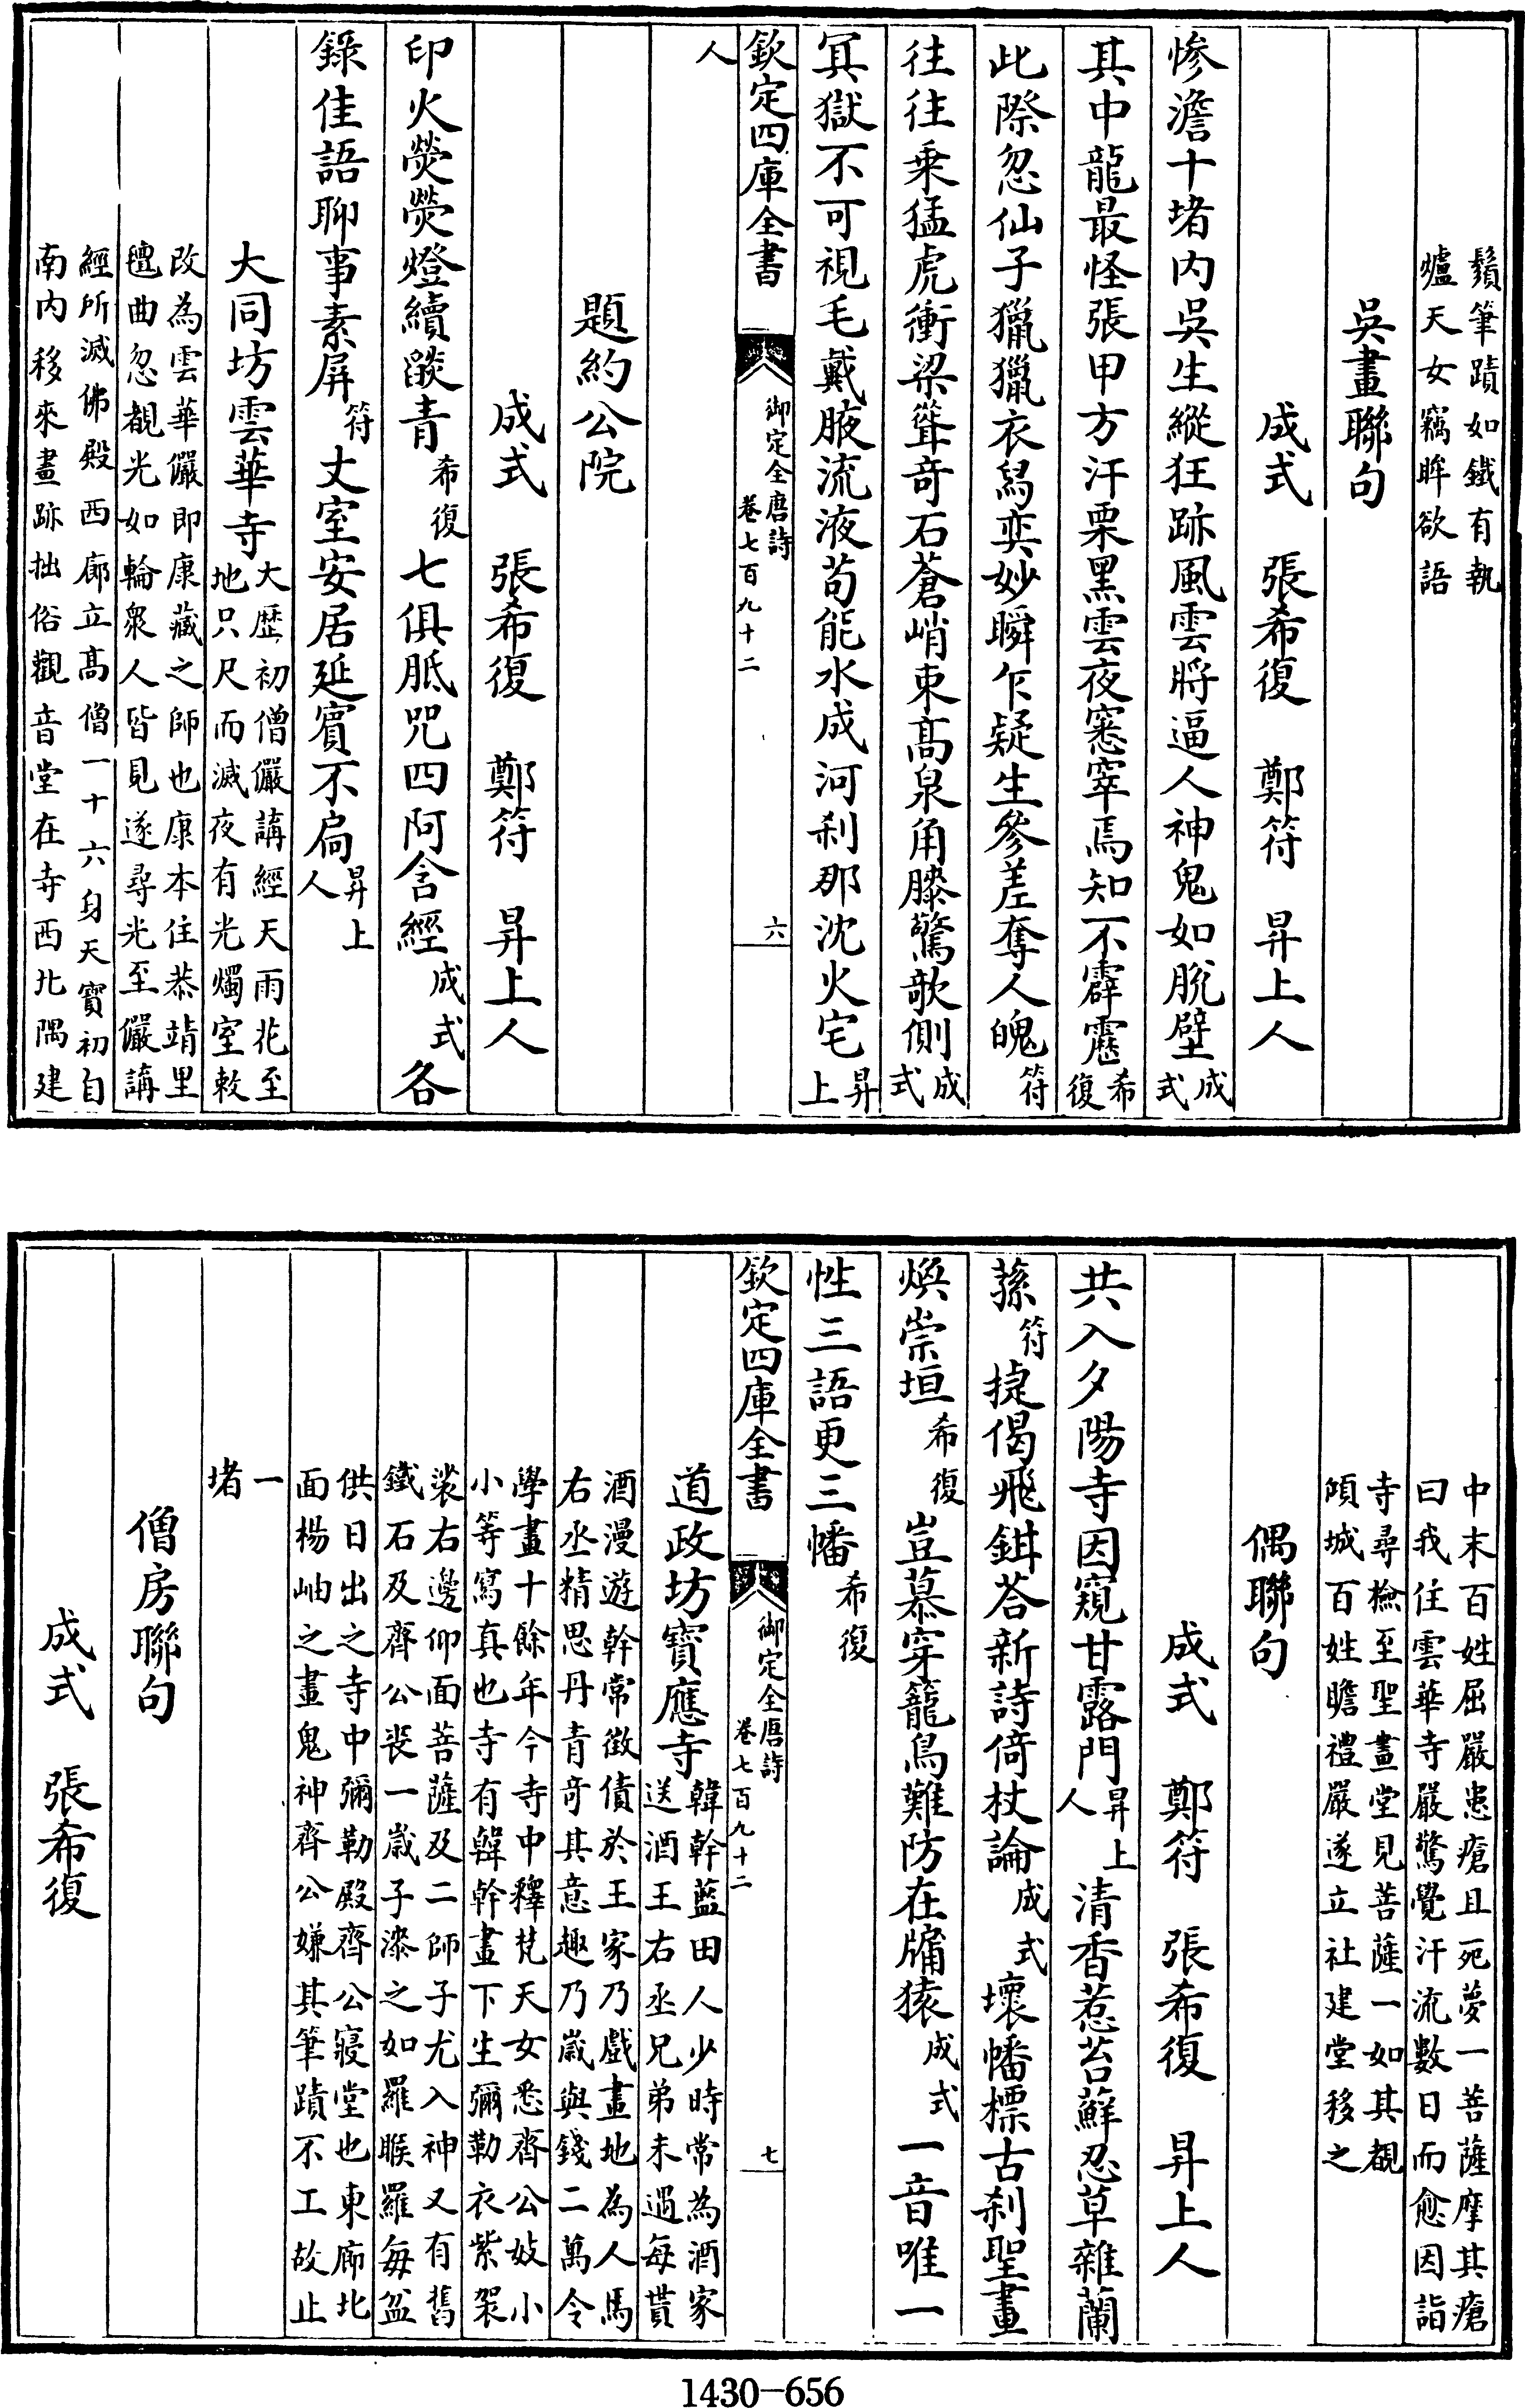 鬚筆蹟如鐵有執
爐天女竊眸欲語
吳畫聯句
成式 張希復 鄭符 昇上人
慘澹十堵內吳生縱狂跡風雲將逼人神鬼如脫壁成式
其中龍最怪張甲方汗栗黑雲夜窸窣焉知不霹靂希復
此際忽仙子獵獵衣舄奕妙瞬乍疑生參差奪人魄符
往往乘猛虎衝梁聳奇石蒼峭束高泉角膝驚欹側成式
冥獄不可視毛戴腋流液苟能水成河刹那沈火宅昇上
欽定四庫全書 御定全唐詩 卷七百九十二 六
人
題約公院
成式 張希復 鄭符 昇上人
印火熒熒燈續燄青希復七俱胝咒四阿含經成式各
錄佳語聊事素屏符丈室安居延賓不扃昇上人
大同坊雲華寺大歷初僧儼講經天雨花至
地只尺而滅夜有光燭室敕
改為雲華儼即康藏之師也康本住恭靖里
氊曲忽覩光如輪衆人皆見遂尋光至儼講
經所滅佛殿西廊立高僧一十六身天寶初自
南內移來畫跡拙俗觀音堂在寺西北隅建
中末百姓屈嚴患瘡且死夢一菩薩摩其瘡
曰我住雲華寺嚴驚覺汗流數日而愈因詣
寺尋檢至聖畫堂見菩薩一如其覩
傾城百姓瞻禮嚴遂立社建堂移之
偶聯句
成式 鄭符 張希復 昇上人
共入夕陽寺因窺甘露門昇上人清香惹苔蘚忍草雜蘭
蓀符捷偈飛鉗荅新詩倚杖論成式壞幡標古刹聖畫
煥崇垣希復豈慕穿籠鳥難防在牖猿成式一音唯一
性三語更三幡希復
欽定四庫全書 御定全唐詩 卷七百九十二 七
道政坊寶應寺韓幹藍田人少時常為酒家
送酒王右丞兄弟未遇每貰
酒漫遊幹常徵債於王家乃戲畫地為人馬
右丞精思丹青奇其意趣乃歲與錢二萬令
學畫十餘年今寺中釋梵天女悉齊公妓小
小等寫真也寺有韓幹畫下生彌勒衣紫袈
裟右邊仰面菩薩及二師子尤入神又有舊
鐵石及齊公喪一歲子漆之如羅睺羅每盆
供日出之寺中彌勒殿齊公寢堂也東廊北
面楊岫之畫鬼神齊公嫌其筆蹟不工故止
一
堵
僧房聯句
成式 張希復
1430-656